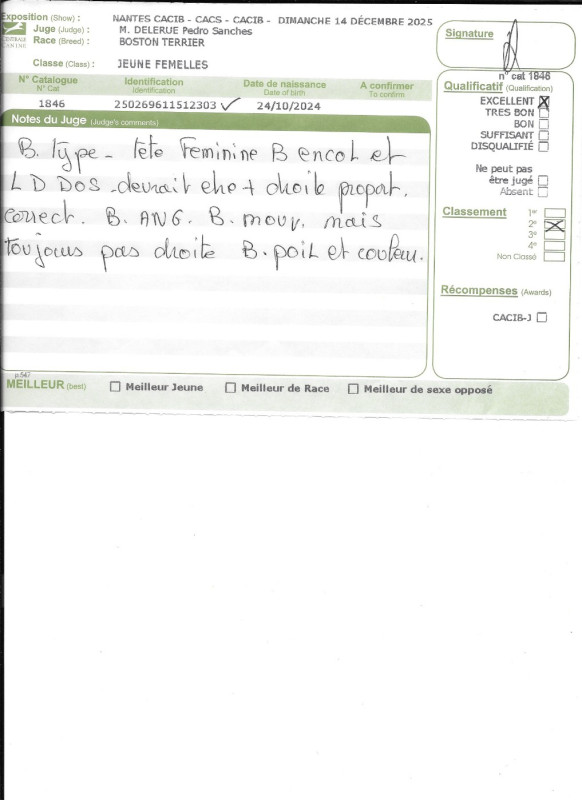 Exposition (Show) : NANTES CACIB - CACS - CACIB - DIMANCHE 14 DÉCEMBRE 2025
Juge (Judge) : M. DELERUE Pedro Sanches
Race (Breed) : BOSTON TERRIER
CENTRALE CANINE
Classe (Class) : JEUNE FEMELLES
Signature
N° Catalogue Identification Date de naissance A confirmer
N° Cat Identification Date of birth To confirm
1846 250269611512303 ✓ 24/10/2024
n° cat 1846
Notes du Juge (Judge's comments)
B. type - tête Feminine B encol et
L D DOS - devrait etre + droite propot.
correct. B. ANG. B. mouv. mais
toujours pas droite B. poil et couleur.
Qualificatif (Qualification)
EXCELLENT X
TRES BON
BON
SUFFISANT
DISQUALIFIÉ
Ne peut pas
être jugé
Absent
Classement 1er
2e X
3e
4e
Non Classé
Récompenses (Awards)
CACIB-J
p.547
MEILLEUR (best) Meilleur Jeune Meilleur de Race Meilleur de sexe opposé